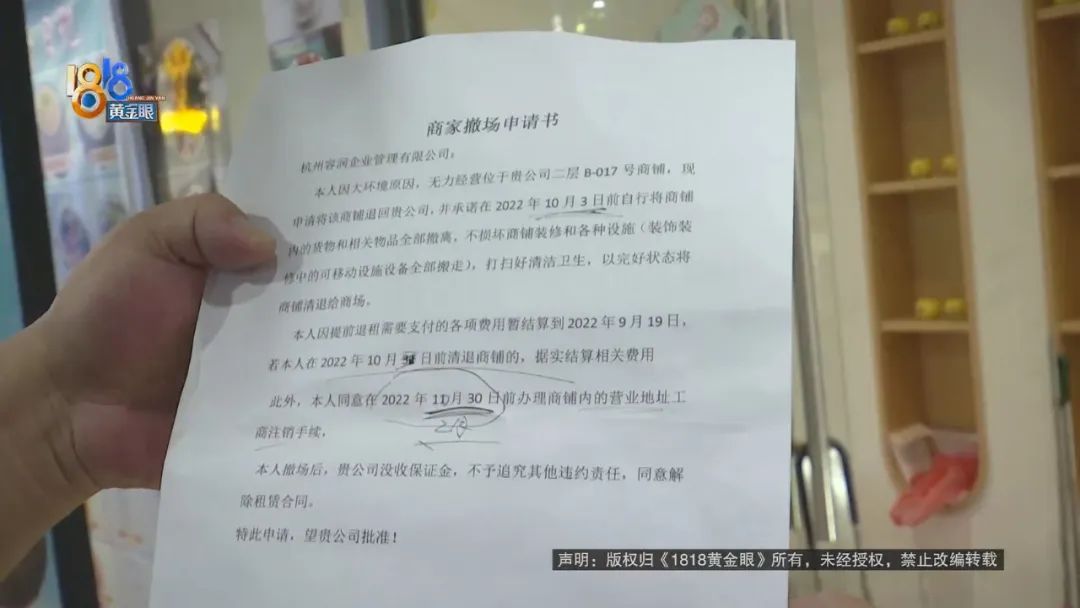 1818
HUANG JIN YAN
黄金眼
商家撤场申请书
杭州容润企业管理有限公司：
本人因大环境原因，无力经营位于贵公司二层 B-017 号商铺，现
申请将该商铺退回贵公司，并承诺在 2022 年 10 月 3 日前自行将商铺
内的货物和相关物品全部撤离，不损坏商铺装修和各种设施（装饰装
修中的可移动设施设备全部搬走），打扫好清洁卫生，以完好状态将
商铺清退给商场。
本人因提前退租需要支付的各项费用暂结算到 2022 年 9 月 19 日，
若本人在 2022 年 10 月 日前清退商铺的，据实结算相关费用
此外，本人同意在 2022 年 11 月 30 日前办理商铺内的营业地址工
商注销手续，
本人撤场后，贵公司没收保证金，不予追究其他违约责任，同意解
除租赁合同。
特此申请，望贵公司批准！
声明：版权归《1818黄金眼》所有，未经授权，禁止改编转载